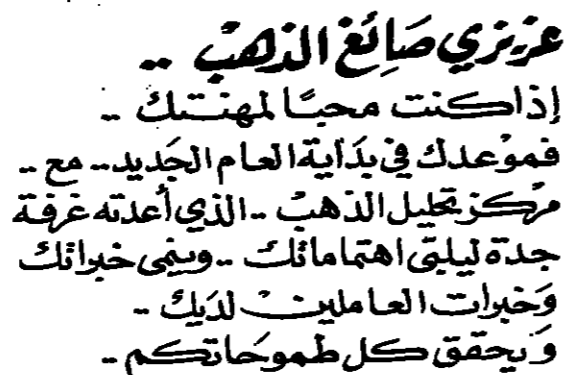 عزيزي صَائِغ الذهبْ ..
إذا كنت محبًا لمهنتك ..
فموْعدك في بدَاية العام الجَديد.. مع ..
مركز تحليل الذهبْ .. الذي أعدته غرفة
جدة ليلبّى اهتماماتك .. وينمى خبراتك
وَخبرات العاملين لدَيك ..
وَيحقق كل طموحَاتكم ..